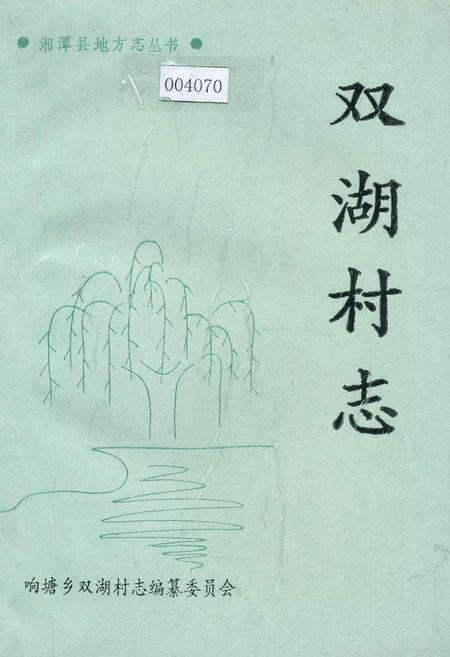 湘潭县地方志丛书
004070
双湖村志
响塘乡双湖村志编纂委员会